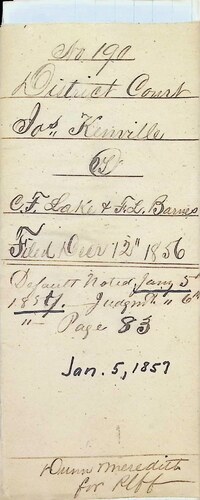 No. 190
District Court
Jos. Kenville
vs
C. F. Lake & F. L. Barnes
Filed Decr 12th 1856
Default Noted Jany 5
1857 — Judgmt " 6th
"— Page 83
Jan. 5, 1857
Dunn & Meredith
for Plff